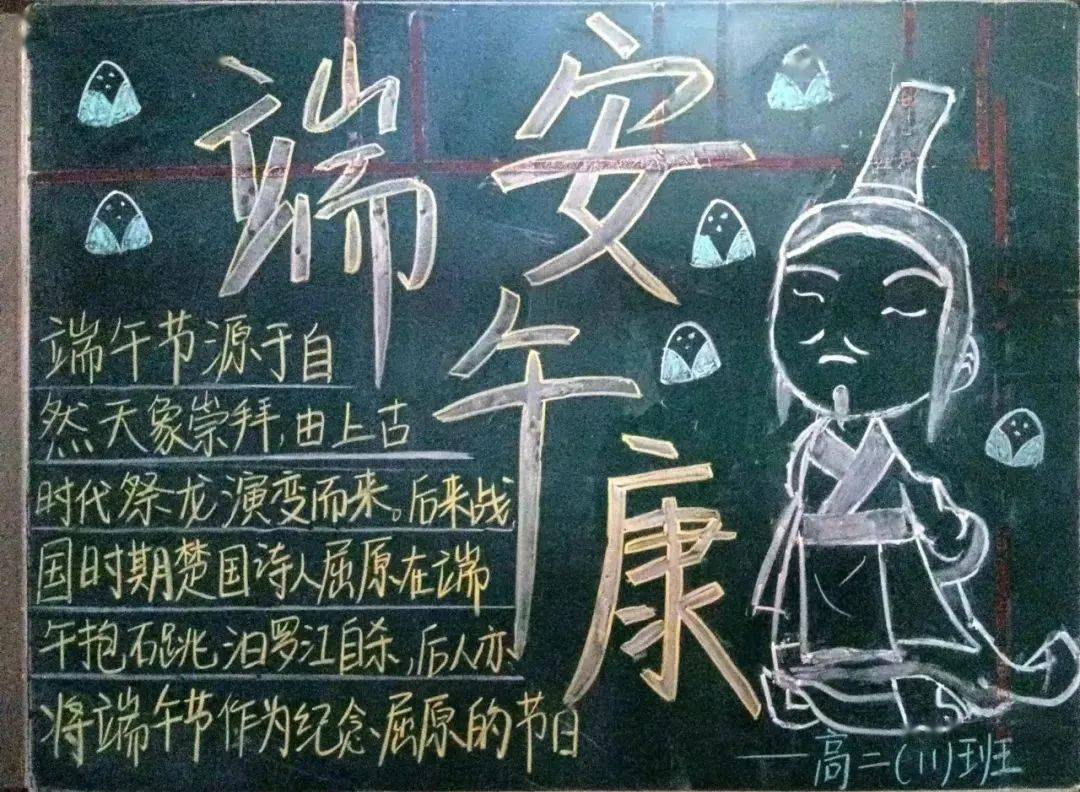 端午安康
端午节源于自
然天象崇拜,由上古
时代祭龙演变而来。后来战
国时期楚国诗人屈原在端
午抱石跳汨罗江自杀,后人亦
将端午节作为纪念屈原的节日
——高二(11)班